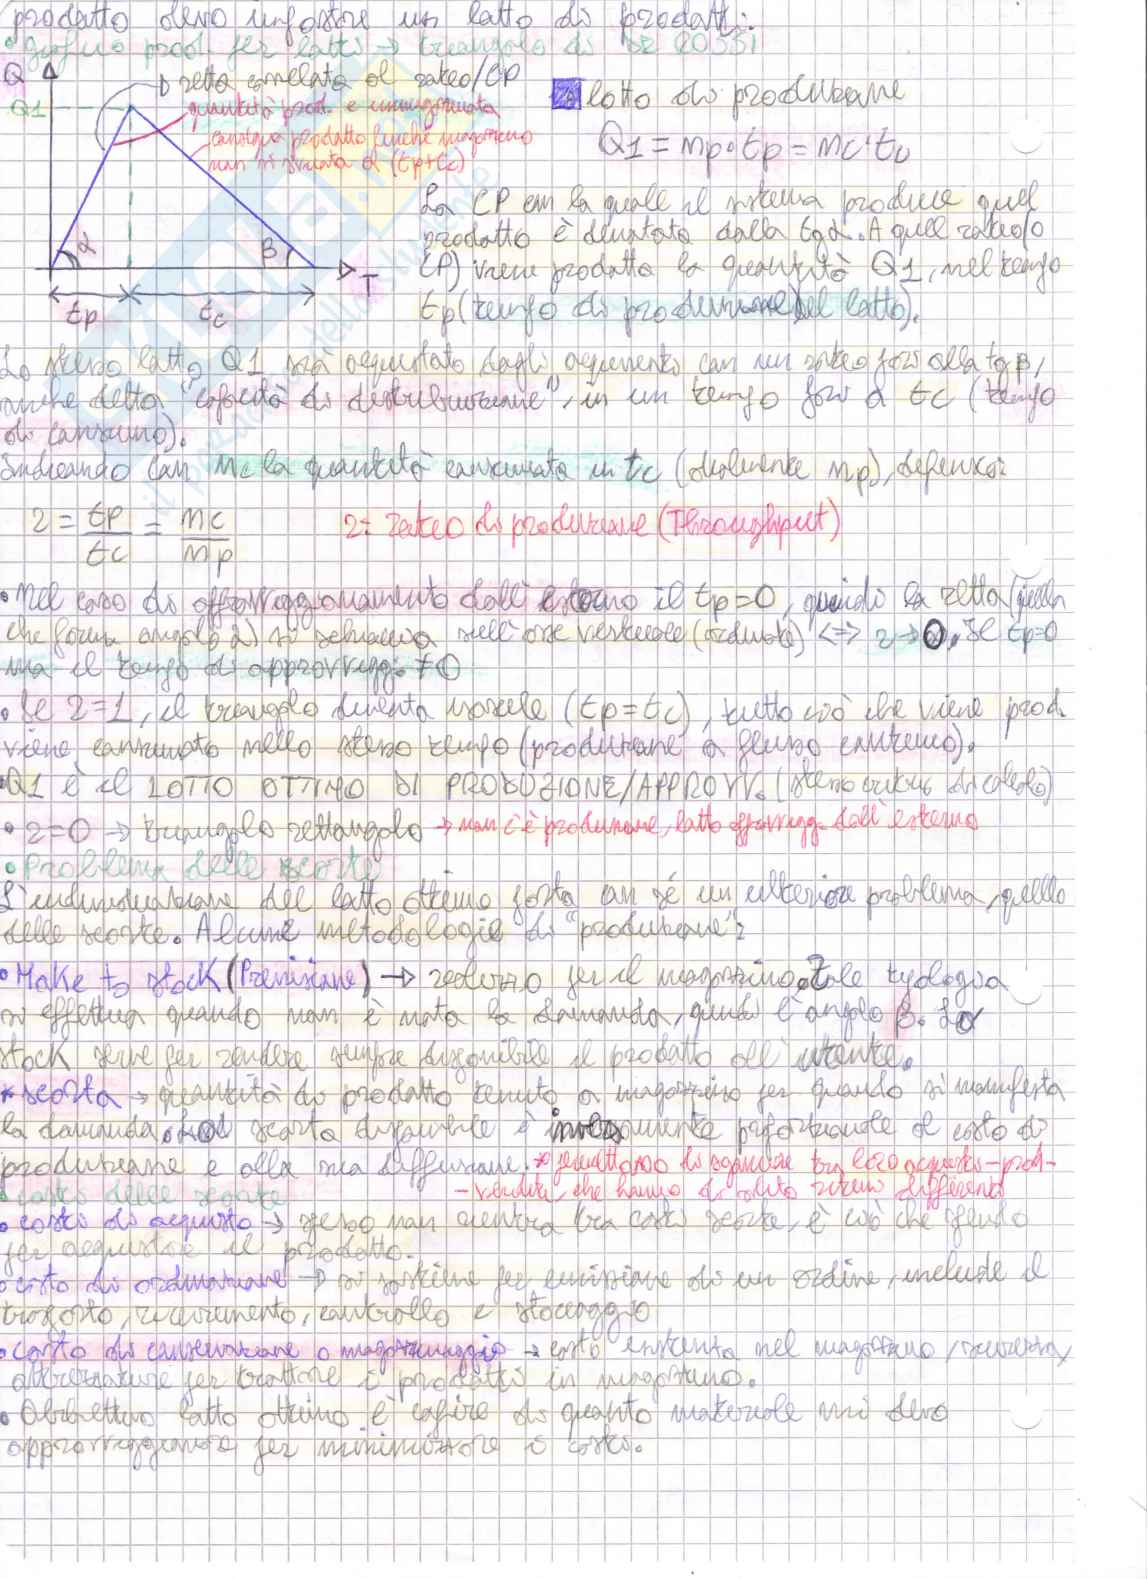 prodotto devo impostare un lotto di prodotti.
• grafico prod. per lotti → triangolo di DE ROSSI
Q
Q1
retta correlata al rateo/CP
quantità prod. e immagazzinata
consuma prodotto finché magazzino
non si svuota α (tp+tc)
α
β
T
tp
tc
lotto di produzione
Q1 = mp·tp = mc·tc
La CP con la quale il sistema produce quel
prodotto è denotata dalla tgα. A quel rateo (o
CP) viene prodotta la quantità Q1, nel tempo
tp (tempo di produzione del lotto).
Lo stesso lotto Q1 sarà acquistato dagli acquirenti con un rateo pari alla tgβ,
anche detto "capacità di distribuzione", in un tempo pari a tc (tempo
di consumo).
Indicando con mc la quantità consumata in tc (idem mp), definisco:
r = tp/tc = mc/mp
r: rateo di produzione (Throughput)
• Nel caso di approvvigionamento dall'esterno il tp=0, quindi la retta (quella
che forma angolo α) si schiaccia sull'asse verticale (ordinata) <=> r→0. Se tp=0
ma il tempo di approvvigg. ≠0
• Se r=1, il triangolo diventa isoscele (tp=tc), tutto ciò che viene prod.
viene consumato nello stesso tempo (produzione a flusso continuo).
• Q1 è il LOTTO OTTIMO DI PRODUZIONE/APPROVV. (stesso di calcolo)
• r=0 → triangolo rettangolo → non c'è produzione, lotto approvvigg. dall'esterno
• Problema delle scorte
L'individuazione del lotto ottimo porta con sé un ulteriore problema, quello
delle scorte. Alcune metodologie di "produzione":
• Make to stock (Previsione) → realizzo per il magazzino. Tale tipologia
si effettua quando non è nota la domanda, quindi l'angolo β. Lo
stock serve per rendere sempre disponibile il prodotto all'utente.
* scorta → quantità di prodotto tenuto a magazzino per quando si manifesta
la domanda. La scorta disponibile è inversamente proporzionale al costo di
produzione e alla sua diffusione. * permettono di sganciare tra loro acquisti-prod-
-vendite, che hanno di solito ritmi differenti
• costi delle scorte
• costi di acquisto → spesso non rientra tra costi scorte, è ciò che spendo
per acquistare il prodotto.
• costo di ordinazione → si sostiene per emissione di un ordine, include il
trasporto, ricevimento, controllo e stoccaggio
• costo di conservazione o magazzinaggio → costo insito nel magazzino, sicurezza,
attrezzature per trattare i prodotti in magazzino.
• Obbiettivo lotto ottimo è capire di quanto materiale mi devo
approvvigionare per minimizzare i costi.